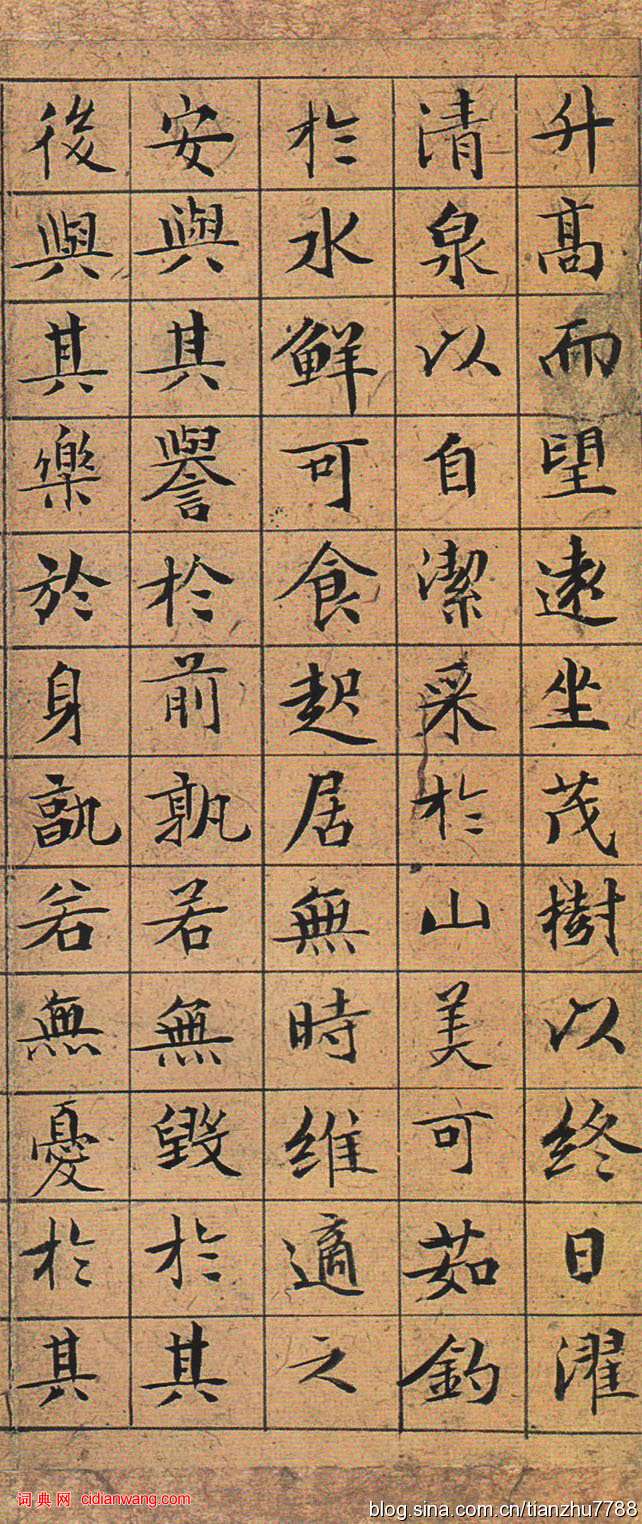 升高而望遠坐茂樹以終日濯
清泉以自潔采於山美可茹釣
於水鮮可食起居無時維適之
安與其譽於前孰若無毀於其
後與其樂於身孰若無憂於其
词典网 cidianwang.com
blog.sina.com.cn/tianzhu7788